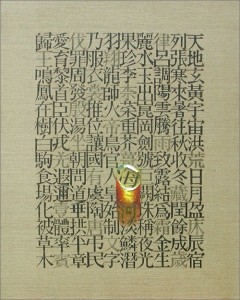 天地玄黃宇宙洪荒日月盈昃辰宿
列張寒來暑往秋收冬藏閏餘成歲
律呂調陽雲騰致雨露結爲霜金生
麗水玉出崑岡劍號巨闕珠稱夜光
果珍李柰菜重芥薑海淡鱗潛
羽翔龍師火帝鳥官人皇始制文字
乃服衣裳推位讓國有虞陶唐弔民
伐罪周發殷湯坐朝問道垂拱平章
愛育黎首臣伏戎羌遐邇壹體率賓
歸王鳴鳳在樹白駒食場化被草木